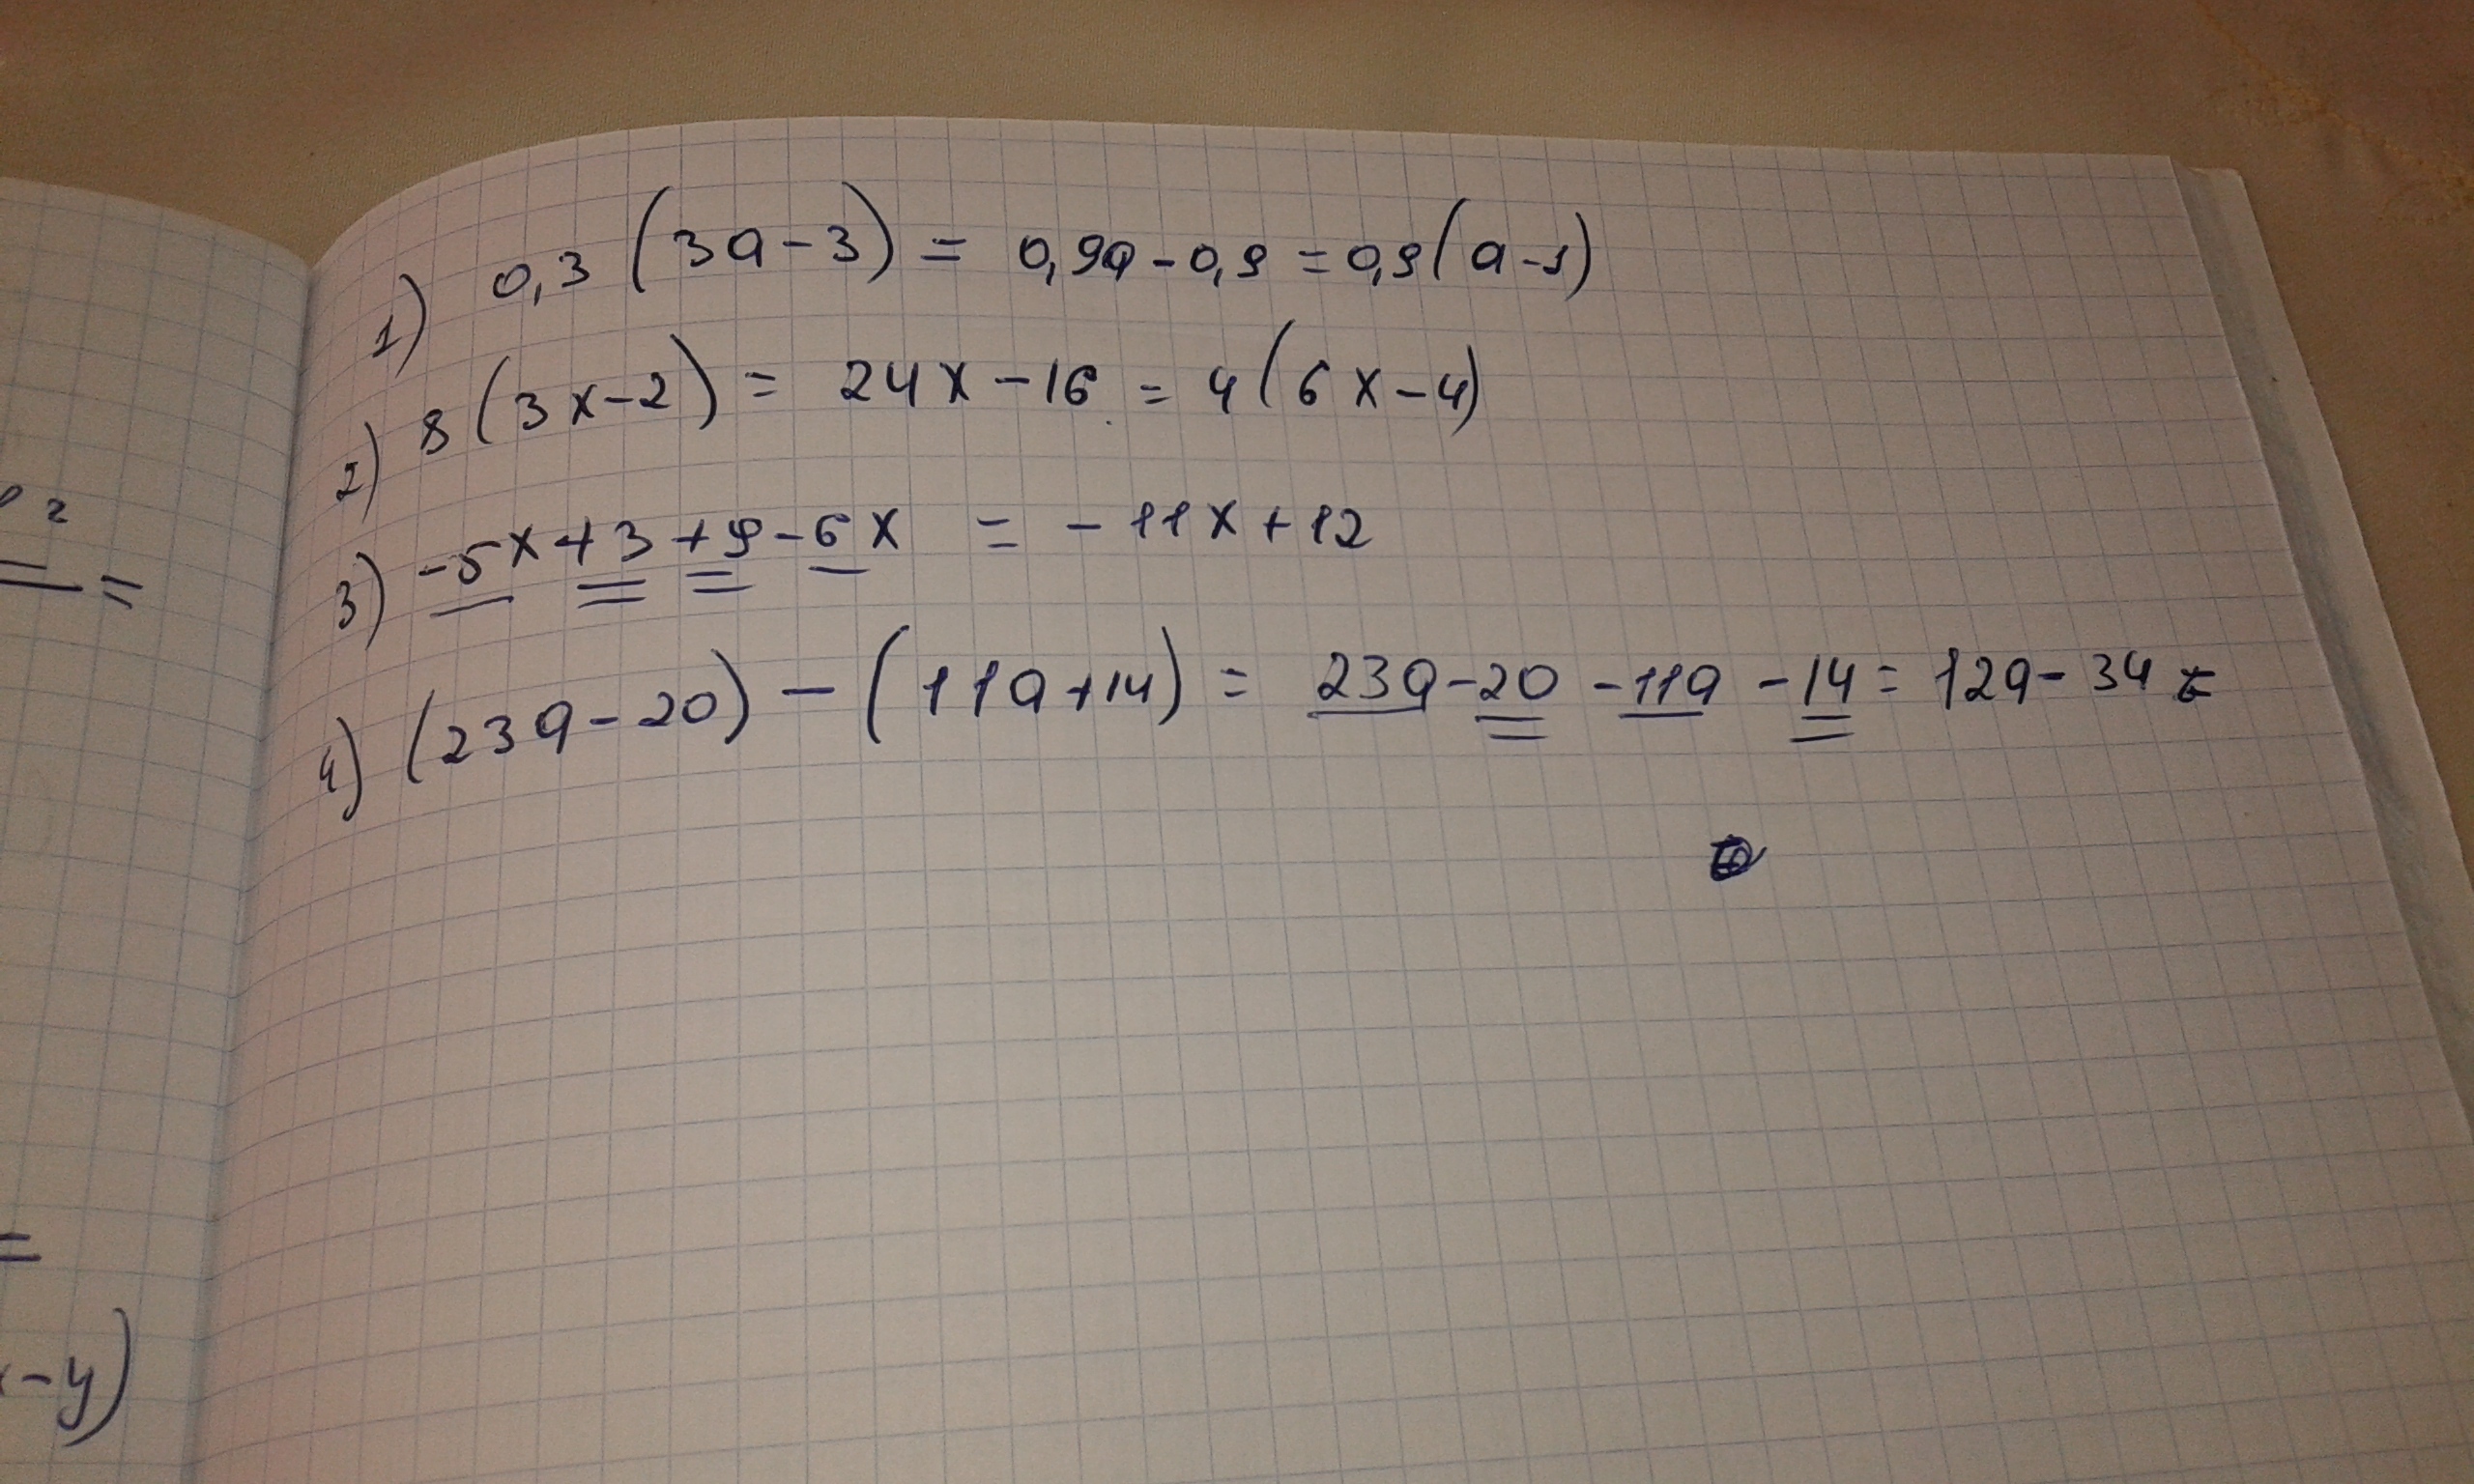 1) 0,3 (3a-3) = 0,9a-0,9 = 0,9(a-1)
2) 8(3x-2) = 24x-16 = 4(6x-4)
3) -5x+3+9-6x = -11x+12
4) (23a-20)-(11a+14) = 23a-20-11a-14= 12a-34
2
=
=
x-y)